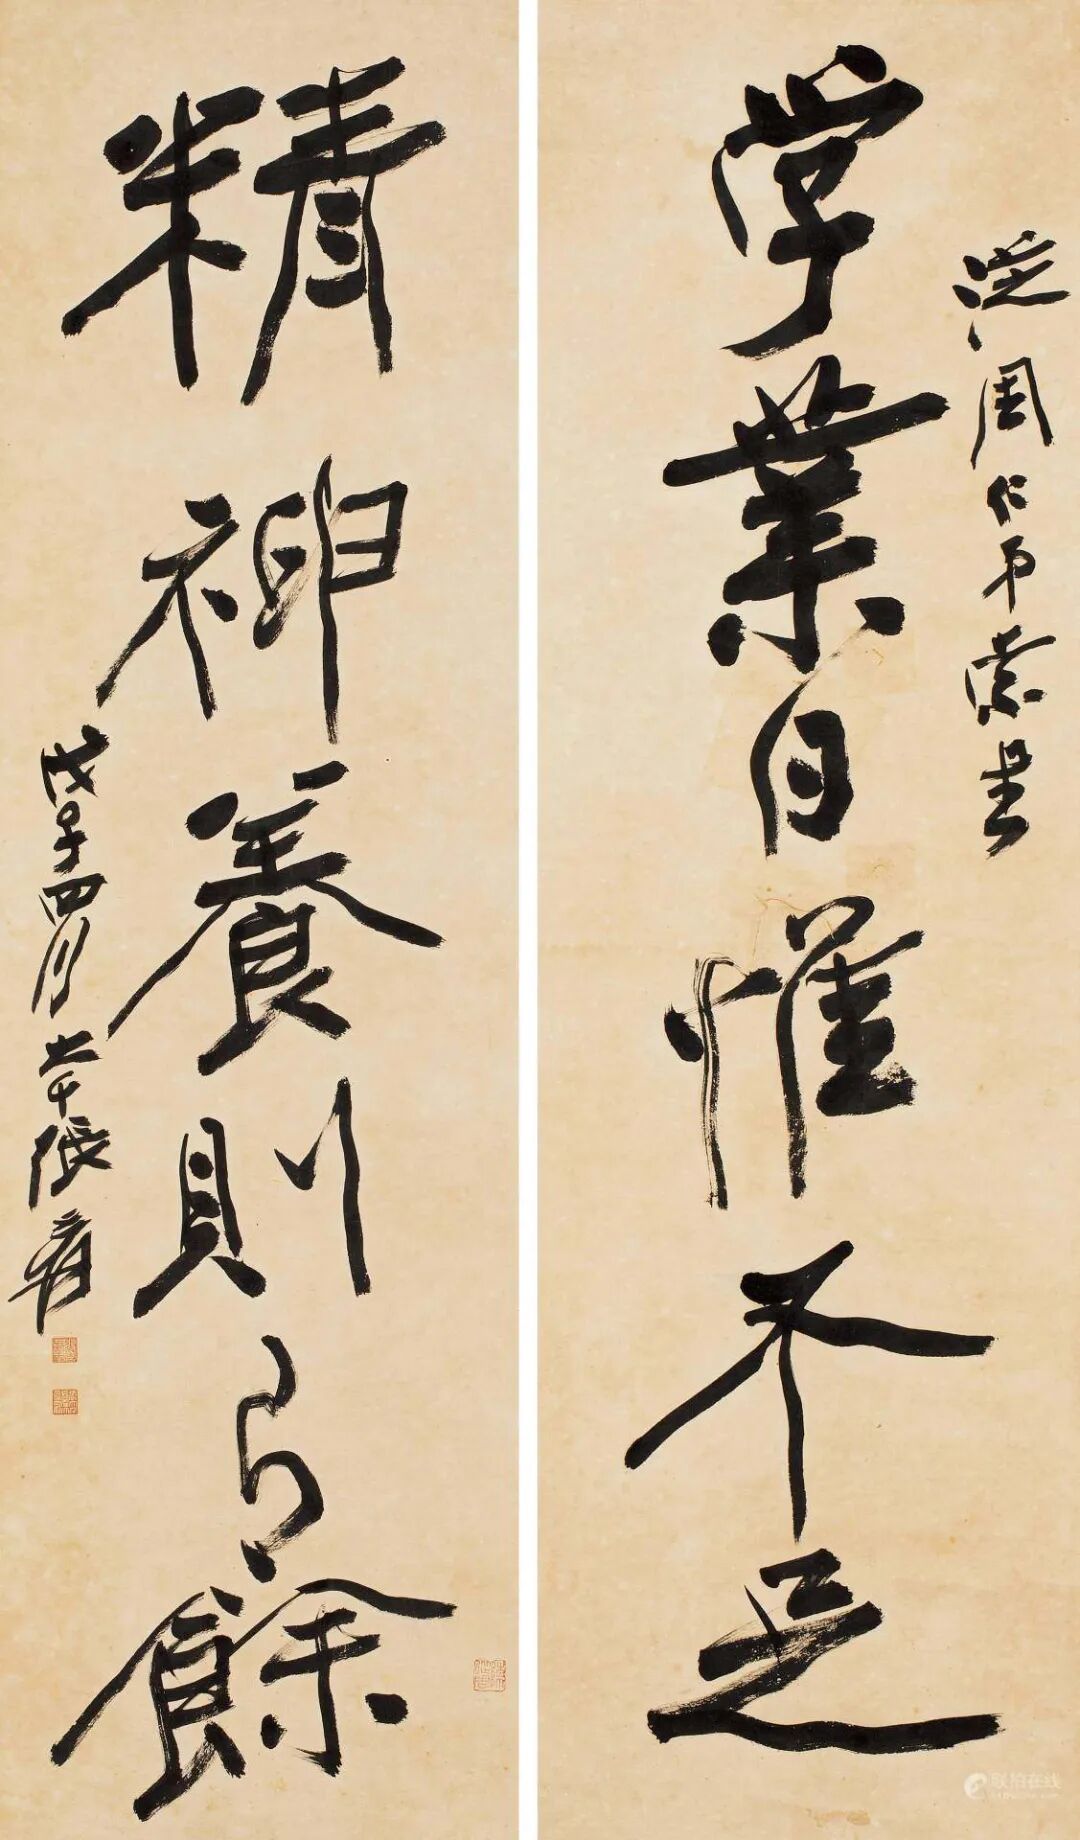 周仁弟索書
学業日惟不足
精神養則有餘
戊子四月大千張爰
联拍在线